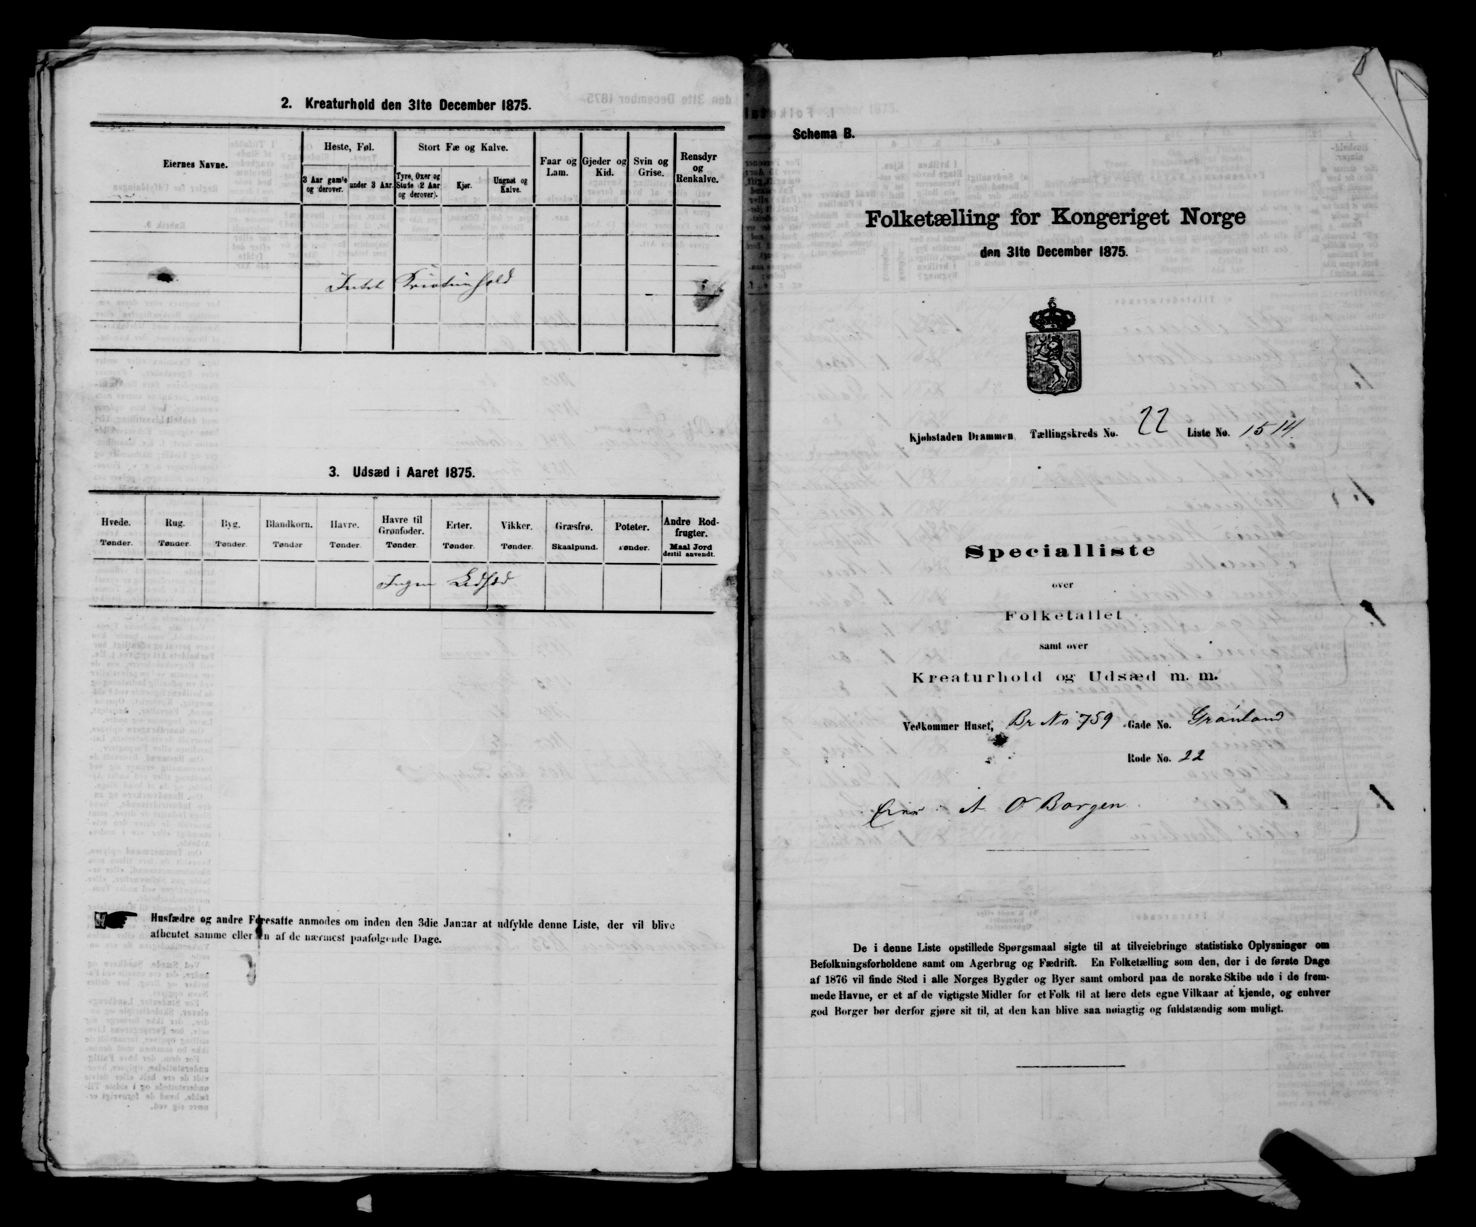 2. Kreaturhold den 31te December 1875.
Eiernes Navne.
Heste, Føl.
Stort Fæ og Kalve.
Faar og Lam.
Gjeder og Kid.
Svin og Grise.
Rensdyr og Renkalve.
3 Aar gamle og derover.
under 3 Aar.
Tyre, Oxer og Stude (2 Aar og derover).
Kjør.
Ungnøt og Kalve.
Intet Kreaturhold
3. Udsæd i Aaret 1875.
Hvede. Rug. Byg. Blandkorn. Havre. Havre til Grønfoder. Erter. Vikker. Græsfrø. Poteter. Andre Rodfrugter.
Tønder. Tønder. Tønder. Tønder. Tønder. Tønder. Tønder. Tønder. Skaalpund. Tønder. Maal Jord dertil anvendt.
Ingen Udsæd
Husfædre og andre Foresatte anmodes om inden den 3die Januar at udfylde denne Liste, der vil blive
afhentet samme eller en af de nærmest paafølgende Dage.
Schema B.
Folketælling for Kongeriget Norge
den 31te December 1875.
Kjøbstaden Drammen. Tællingskreds No. 22 Liste No. 15 14
Specialliste
over
Folketallet
samt over
Kreaturhold og Udsæd m. m.
Vedkommer Huset, Br No 759 Gade No. Grønland
Rode No. 22
A O Borgen
De i denne Liste opstillede Spørgsmaal sigte til at tilveiebringe statistiske Oplysninger om
Befolkningsforholdene samt om Agerbrug og Fædrift. En Folketælling som den, der i de første Dage
af 1876 vil finde Sted i alle Norges Bygder og Byer samt ombord paa de norske Skibe ude i de frem-
mede Havne, er et af de vigtigste Midler for et Folk til at lære dets egne Vilkaar at kjende, og enhver
god Borger bør derfor gjøre sit til, at den kan blive saa nøiagtig og fuldstændig som muligt.